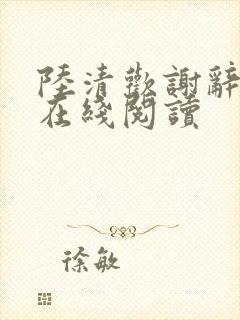 陸清歡謝辭
在綫閱讀
徐敏